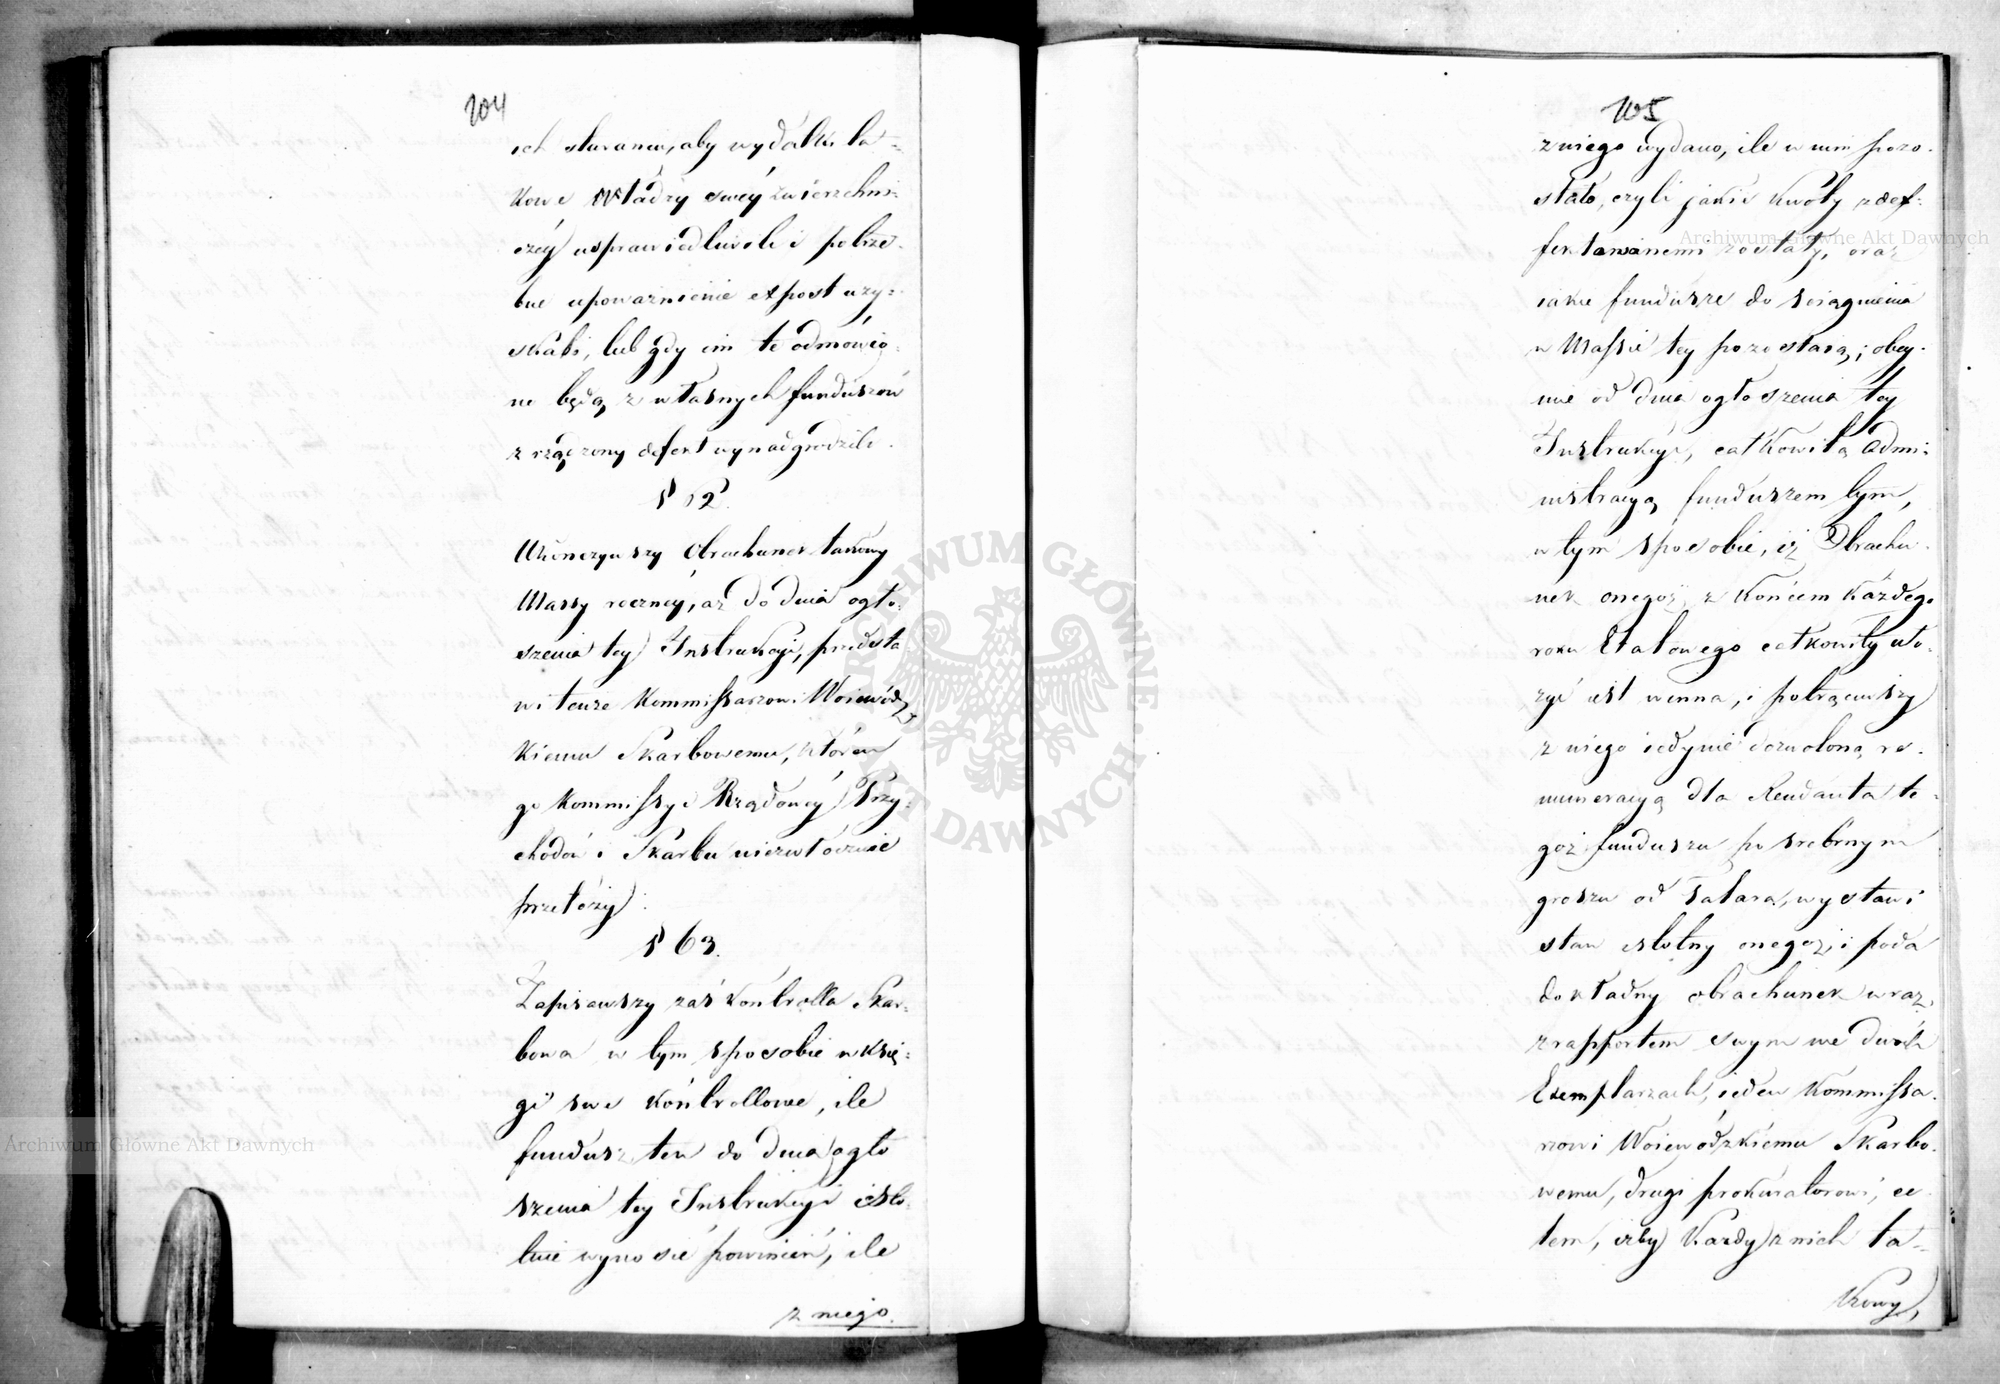 104
ich starania, aby wydatki ta=
kowe Władzy swéy zwierzchni=
czéy usprawiedliwili i potrze=
bne upoważnienie expost uzy=
skali, lub gdy im te odmówio=
ne będą z własnych funduszów
zrządzony defekt wynadgrodzili.
§ 62.
Ukończywszy Obrachunek takowy
Massy roczney, aż do dnia ogło=
szenia tey Instrukcyi, przedsta
wi tenże Kommissarzowi Woiewódz
kiemu Skarbowemu, który
go Kommissyi Rządowéy Przy=
chodów i Skarbu niezwłócznie
przełoży.
§ 63.
Zapisawszy zaś Kontrolla Skar=
bowa w tym sposobie w Księ=
gi swe Kontrollowe, ile
fundusz ten do dnia ogło
szenia tey Instrukcyi isto=
tnie wynosić powinien, ile
z niego.
105
z niego wydano, ile w nim pozo=
stało, czyli jakie kwoty zdef=
fektowanemi zostały, oraz
iakie fundusze do sciągnienia
w Massie tey pozostaią; obey=
mie od dnia ogłoszenia tey
Instrukcyi, całkowitą admi=
nistracyą funduszem tym,
w tym sposobie, iż Obrachu=
nek onegoż z końcem każdego
roku Etatowego całkowity uło=
żyć iest winna, i potrąciwszy
z niego iedynie dozwoloną re=
muneracyą dla Rendanta te=
goż funduszu po srebrnym
groszu od Talara, wystawi
stan istotny onegoż, i poda
dokładny obrachunek wraz
z rapportem swym we dwóch
Exemplarzach, ieden Kommissa=
rzowi Woiewódzkiemu Skarbo=
wemu, drugi prokuratorowi, ce=
lem, iżby każdy z nich ta=
kowy,
Archiwum Główne Akt Dawnych
Archiwum Główne Akt Dawnych
ARCHIWUM GŁÓWNE AKT DAWNYCH